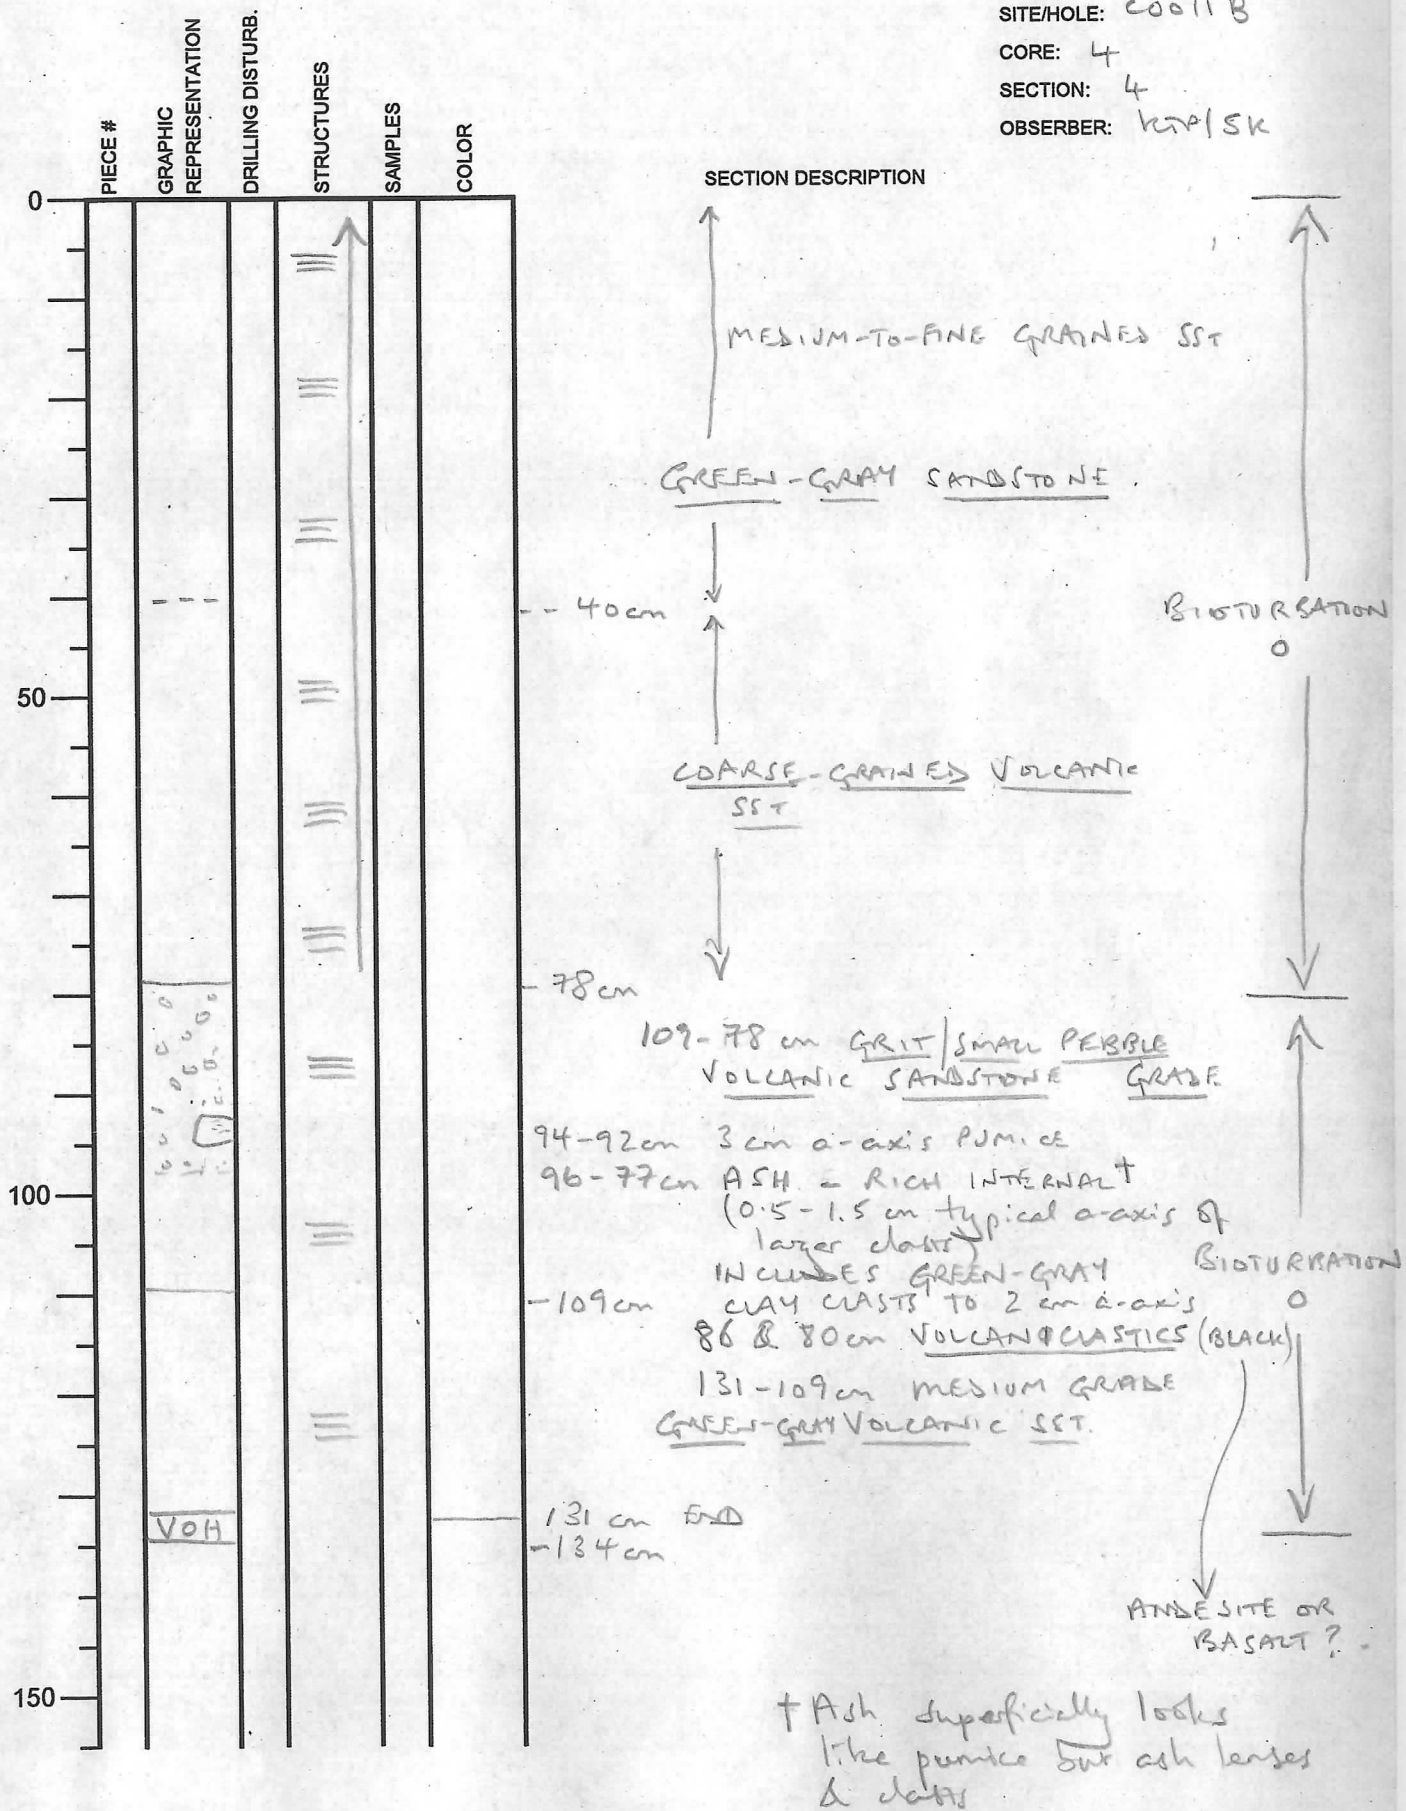 SITE/HOLE: C0011 B
CORE: 4
SECTION: 4
OBSERBER: KTP/SK
PIECE #
GRAPHIC
REPRESENTATION
DRILLING DISTURB.
STRUCTURES
SAMPLES
COLOR
SECTION DESCRIPTION
0
MEDIUM-TO-FINE GRAINED SST
GREEN-GRAY SANDSTONE.
-- 40cm
BIOTURBATION
0
50
COARSE-GRAINED VOLCANIC
SST
- 78 cm
109-78 cm GRIT/SMALL PEBBLE
VOLCANIC SANDSTONE GRADE
94-92cm 3 cm a-axis PUMICE
96-77cm ASH - RICH INTERNAL†
100
(0.5-1.5 cm typical a-axis of
larger clasts)
INCLUDES GREEN-GRAY
BIOTURBATION
0
-109cm CLAY CLASTS TO 2 cm a-axis
86 & 80cm VOLCANICLASTICS (BLACK)
131-109cm MEDIUM GRADE
GREEN-GRAY VOLCANIC SST.
VOH
131 cm END
-134cm
ANDESITE OR
BASALT?
150
† Ash superficially looks
like pumice but ash lenses
& clasts